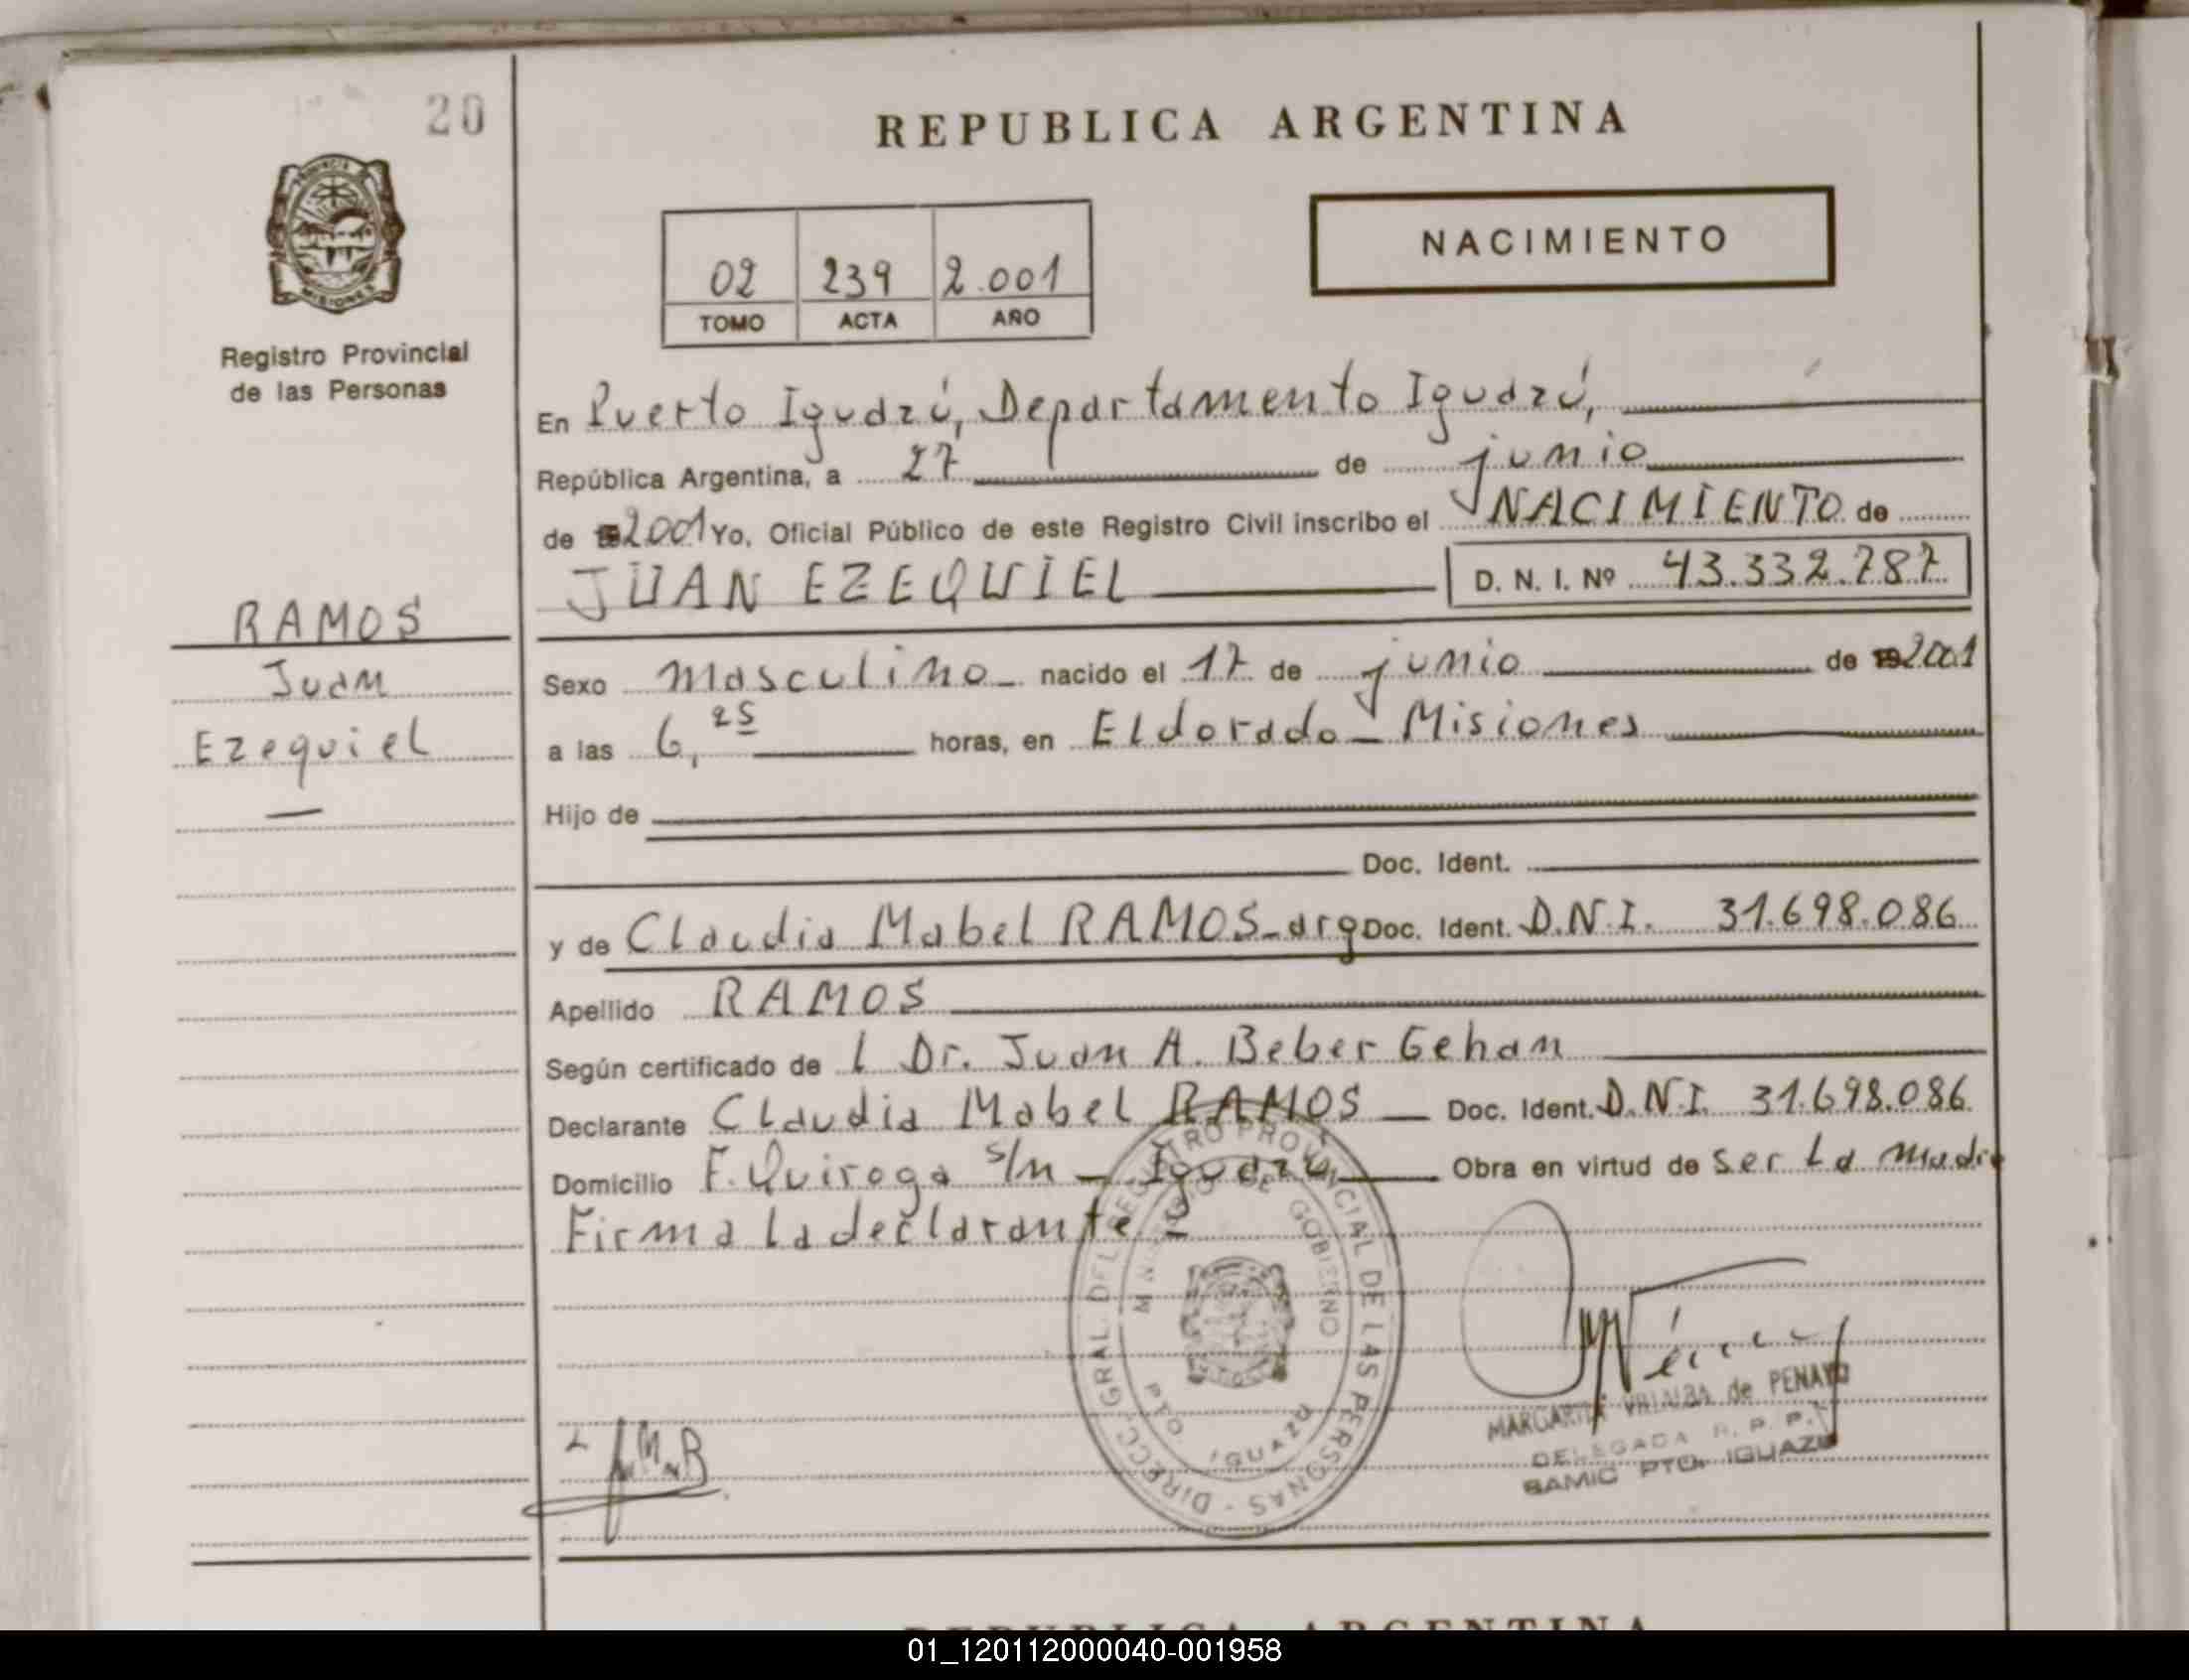 20
REPUBLICA ARGENTINA
PROVINCIA
MISIONES
Registro Provincial
de las Personas
NACIMIENTO
02 239 2.001
TOMO ACTA AÑO
En Puerto Iguazú, Departamento Iguazú,
República Argentina, a 27 de junio
de 2001 Yo, Oficial Público de este Registro Civil inscribo el NACIMIENTO de
JUAN EZEQUIEL D. N. I. Nº 43.332.787
RAMOS
Juan
Ezequiel
Sexo masculino nacido el 17 de junio de 2001
a las 6,25 horas, en Eldorado - Misiones
Hijo de
Doc. Ident.
y de Claudia Mabel RAMOS - arg Doc. Ident. D.N.I. 31.698.086
Apellido RAMOS
Según certificado de l Dr. Juan A. Beber Gehan
Declarante Claudia Mabel RAMOS Doc. Ident. D.N.I. 31.698.086
Domicilio F. Quiroga s/n - Iguazú Obra en virtud de ser la madre
Firma la declarante
DIRECC. GRAL. DEL REGISTRO PROVINCIAL DE LAS PERSONAS -
MINISTERIO DE GOBIERNO
PTO. IGUAZU
MARGARITA VILLALBA de PENAYO
DELEGADA R. P. P.
SAMIC PTO. IGUAZU
REPUBLICA ARGENTINA
01_120112000040-001958